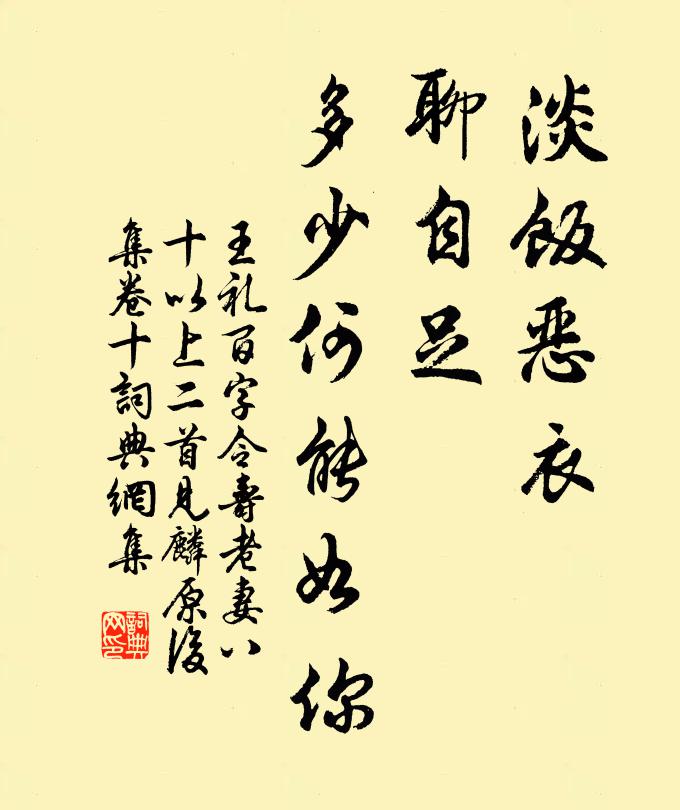 淡飯惡衣
聊自足
多少何能如你
王礼百字令壽老妻八
十以上二首見麟原後
集卷十詞典網集
詞典
网印